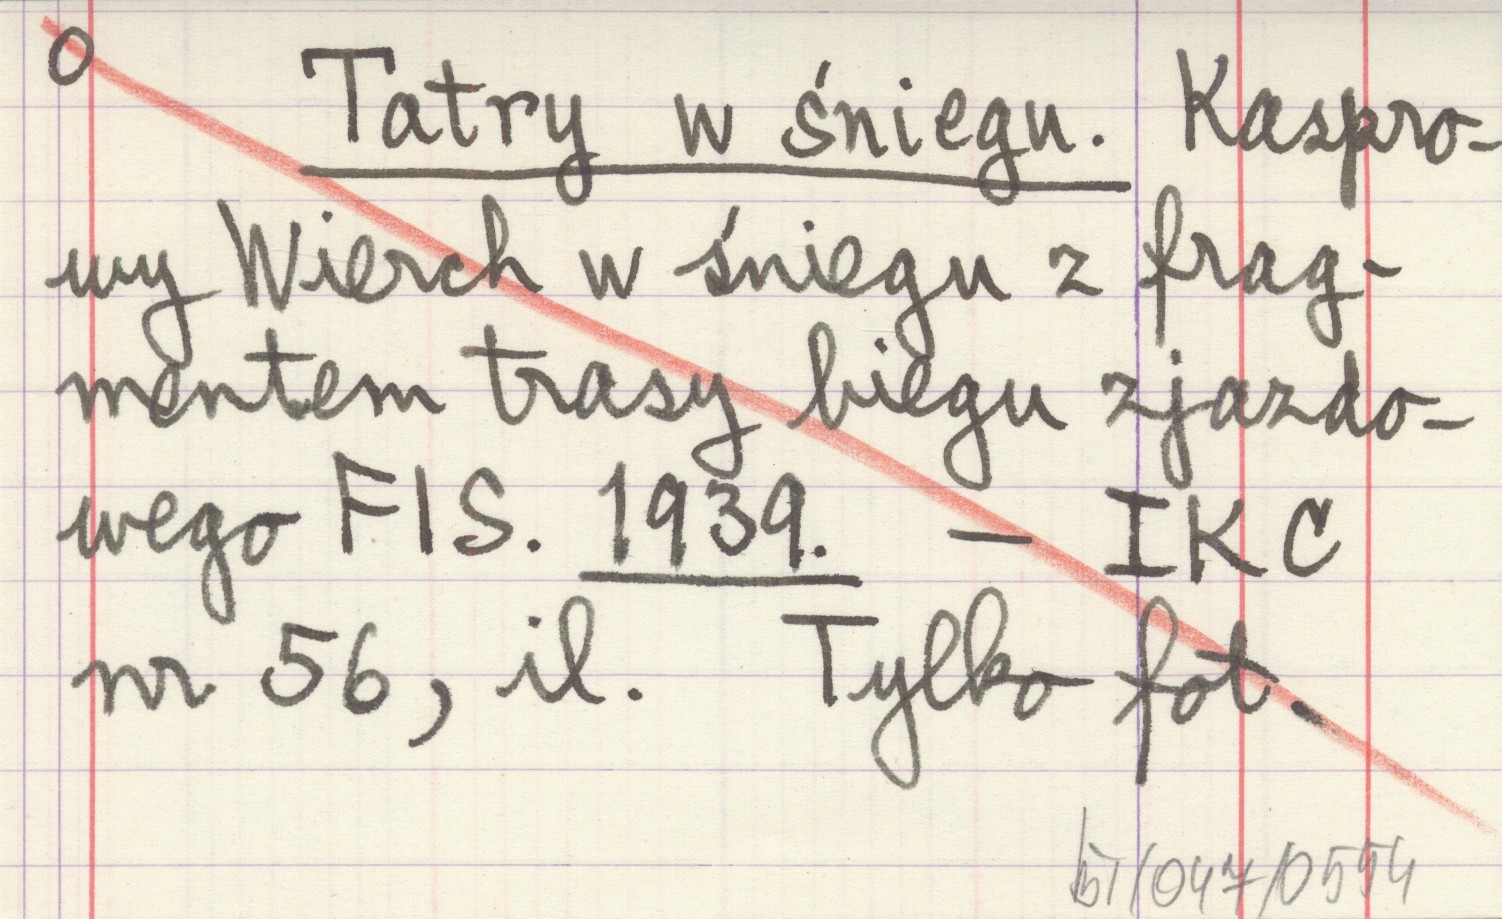 O Tatry w śniegu. Kaspro-
wy Wierch w śniegu z frag-
mentem trasy biegu zjazdo-
wego FIS. 1939. – IKC
nr 56, il. Tylko fot.
/047/0554